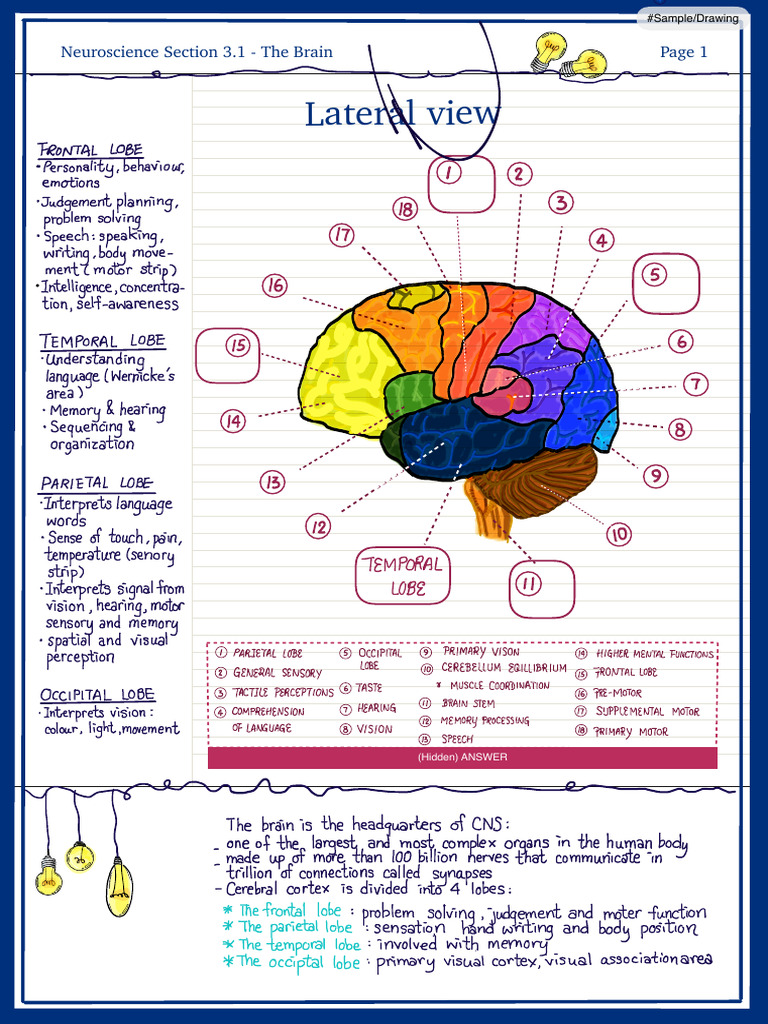 #Sample/Drawing
Neuroscience Section 3.1 - The Brain
Page 1
Lateral view
FRONTAL LOBE
• Personality, behaviour,
emotions
• Judgement planning,
problem solving
• Speech: speaking,
writing, body move-
ment (motor strip)
• Intelligence, concentra-
tion, self-awareness
TEMPORAL LOBE
• Understanding
language (Wernicke's
area)
• Memory & hearing
• Sequencing &
organization
PARIETAL LOBE
• Interprets language
words
• Sense of touch, pain,
temperature (senory
strip)
• Interprets signal from
vision, hearing, motor
sensory and memory
• spatial and visual
perception
OCCIPITAL LOBE
• Interprets vision:
colour, light, movement
1
2
3
4
5
6
7
8
9
10
11
TEMPORAL
LOBE
12
13
14
15
16
17
18
1 PARIETAL LOBE
2 GENERAL SENSORY
3 TACTILE PERCEPTIONS
4 COMPREHENSION
OF LANGUAGE
5 OCCIPITAL
LOBE
6 TASTE
7 HEARING
8 VISION
9 PRIMARY VISON
10 CEREBELLUM EQILIBRIUM
* MUSCLE COORDINATION
11 BRAIN STEM
12 MEMORY PROCESSING
13 SPEECH
14 HIGHER MENTAL FUNCTIONS
15 FRONTAL LOBE
16 PRE-MOTOR
17 SUPPLEMENTAL MOTOR
18 PRIMARY MOTOR
(Hidden) ANSWER
The brain is the headquarters of CNS:
- one of the largest and most complex organs in the human body
- made up of more than 100 billion nerves that communicate in
- trillion of connections called synapses
- Cerebral cortex is divided into 4 lobes:
* The frontal lobe : problem solving, judgement and moter function
* The parietal lobe : sensation hand writing and body position
* The temporal lobe : involved with memory
* The occiptal lobe : primary visual cortex, visual association area